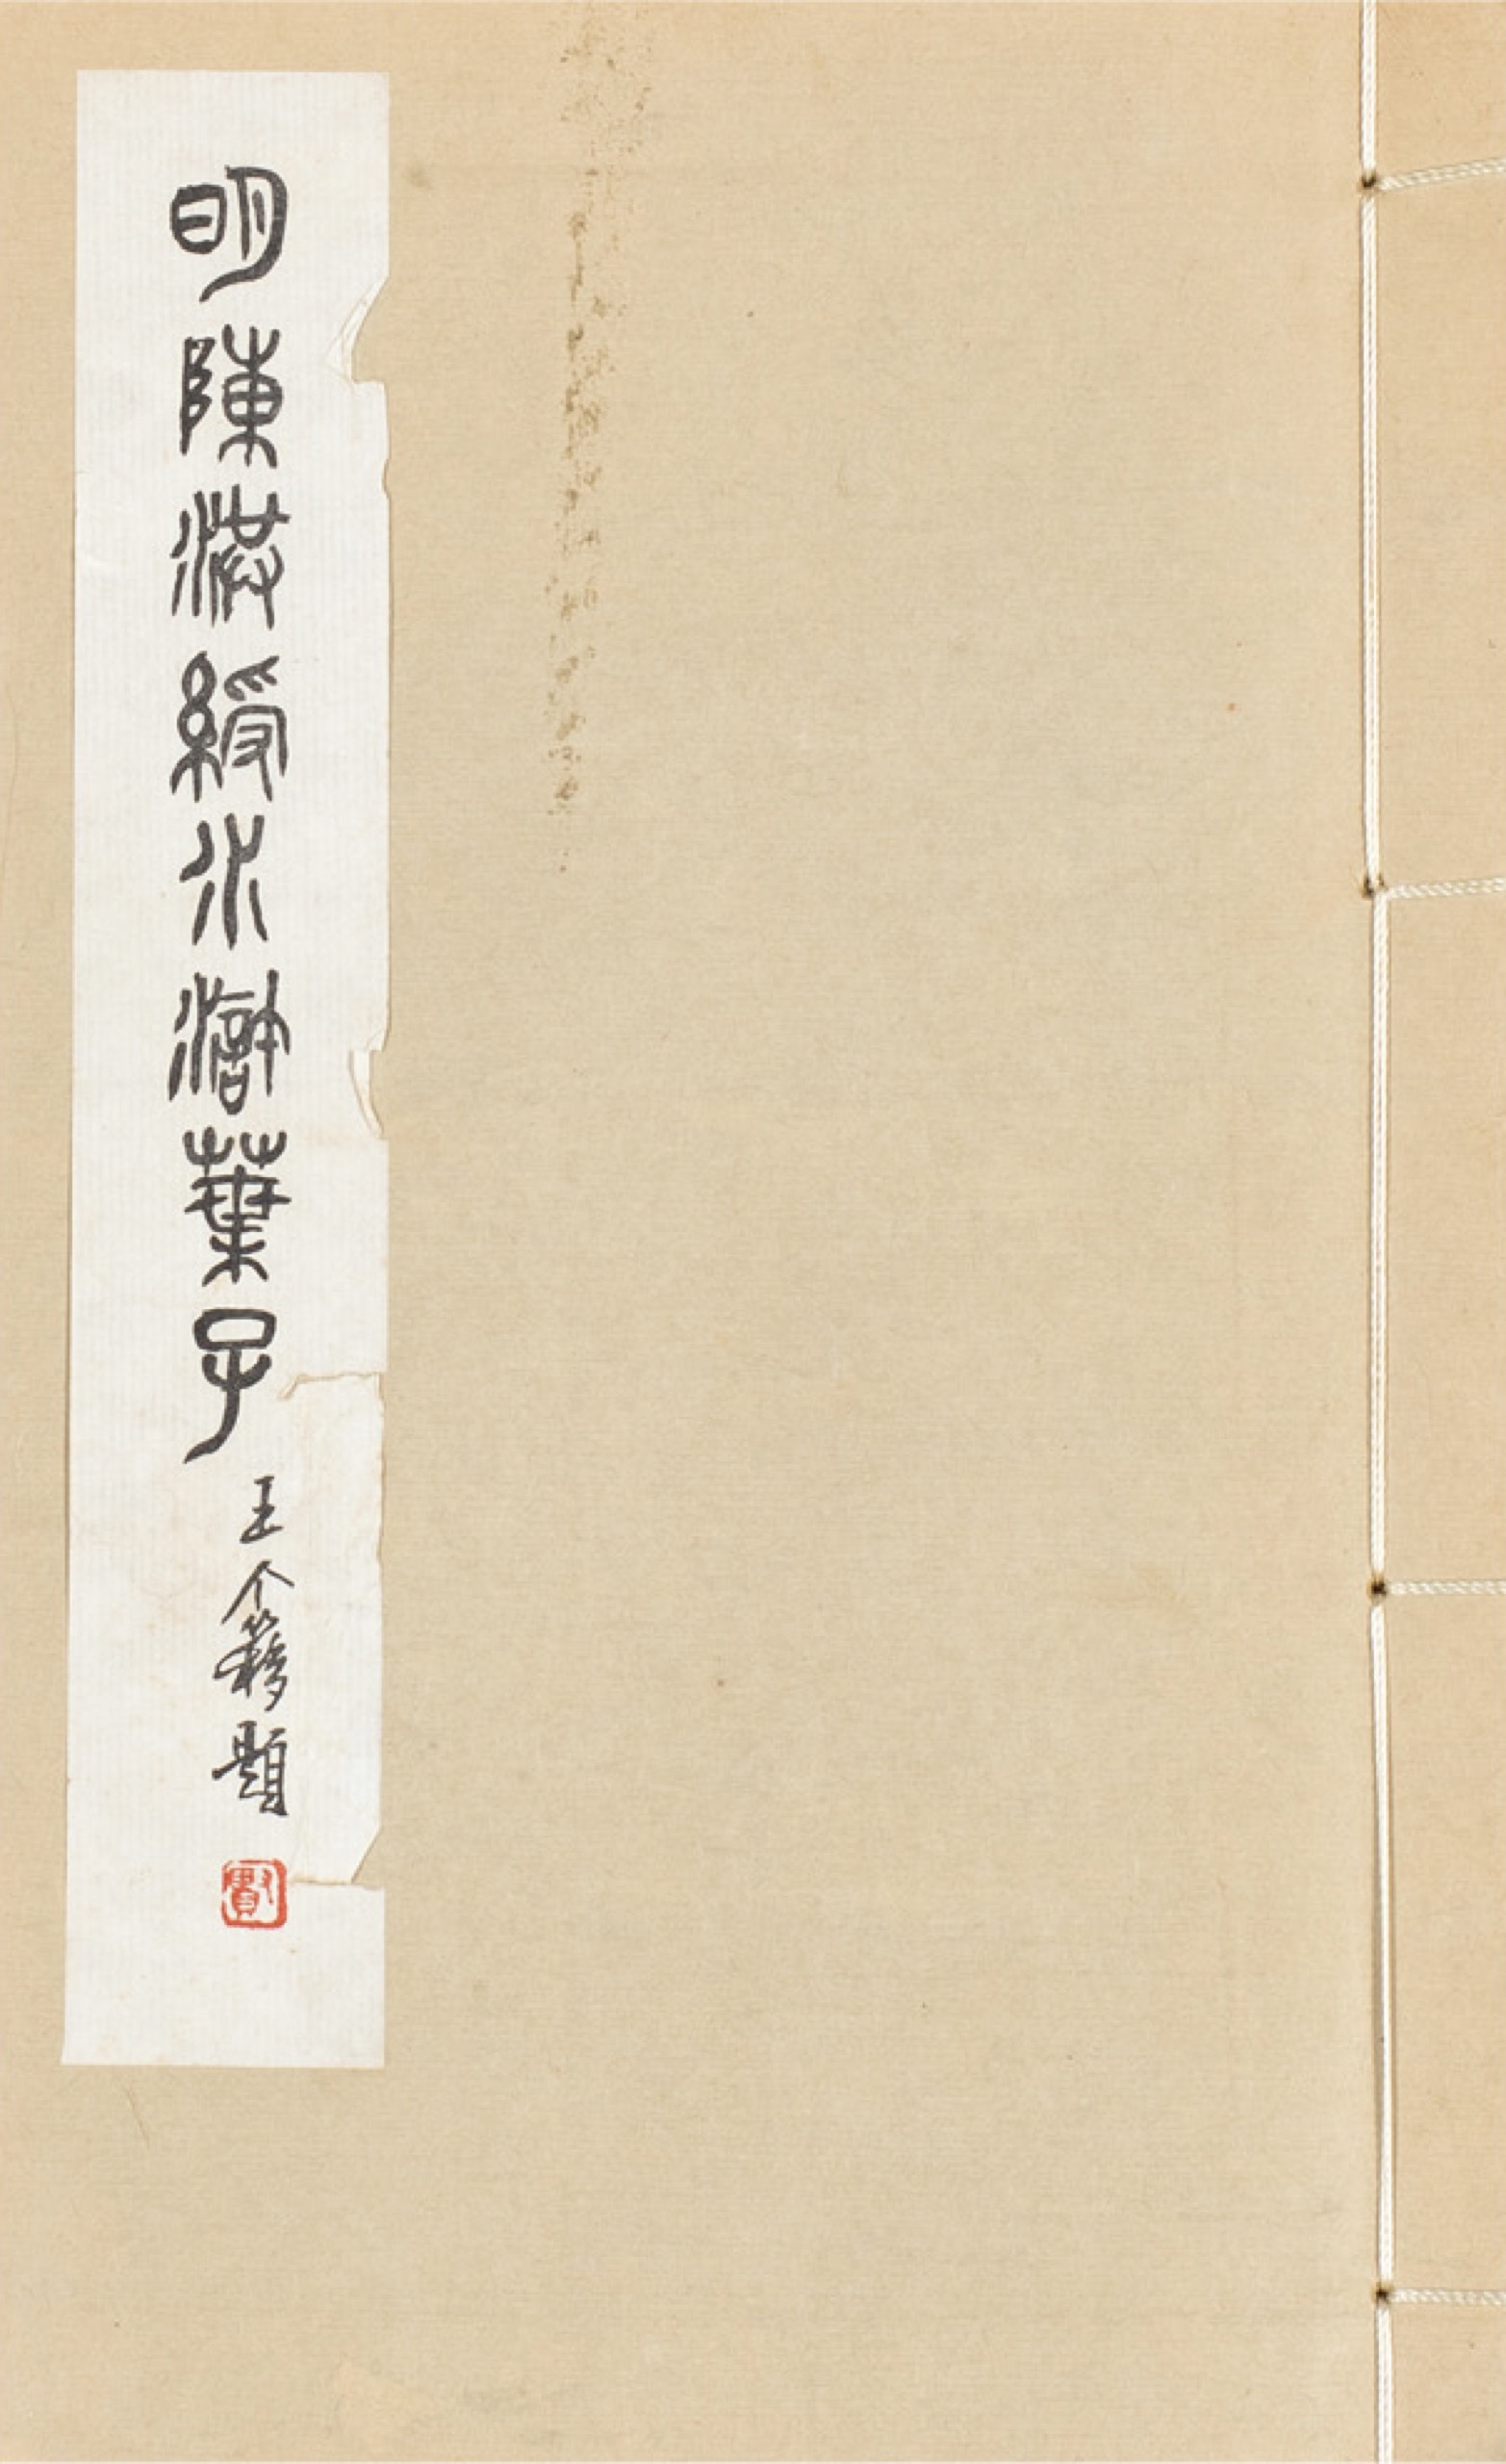 明陳洪綬水滸葉子
王个簃題
賢